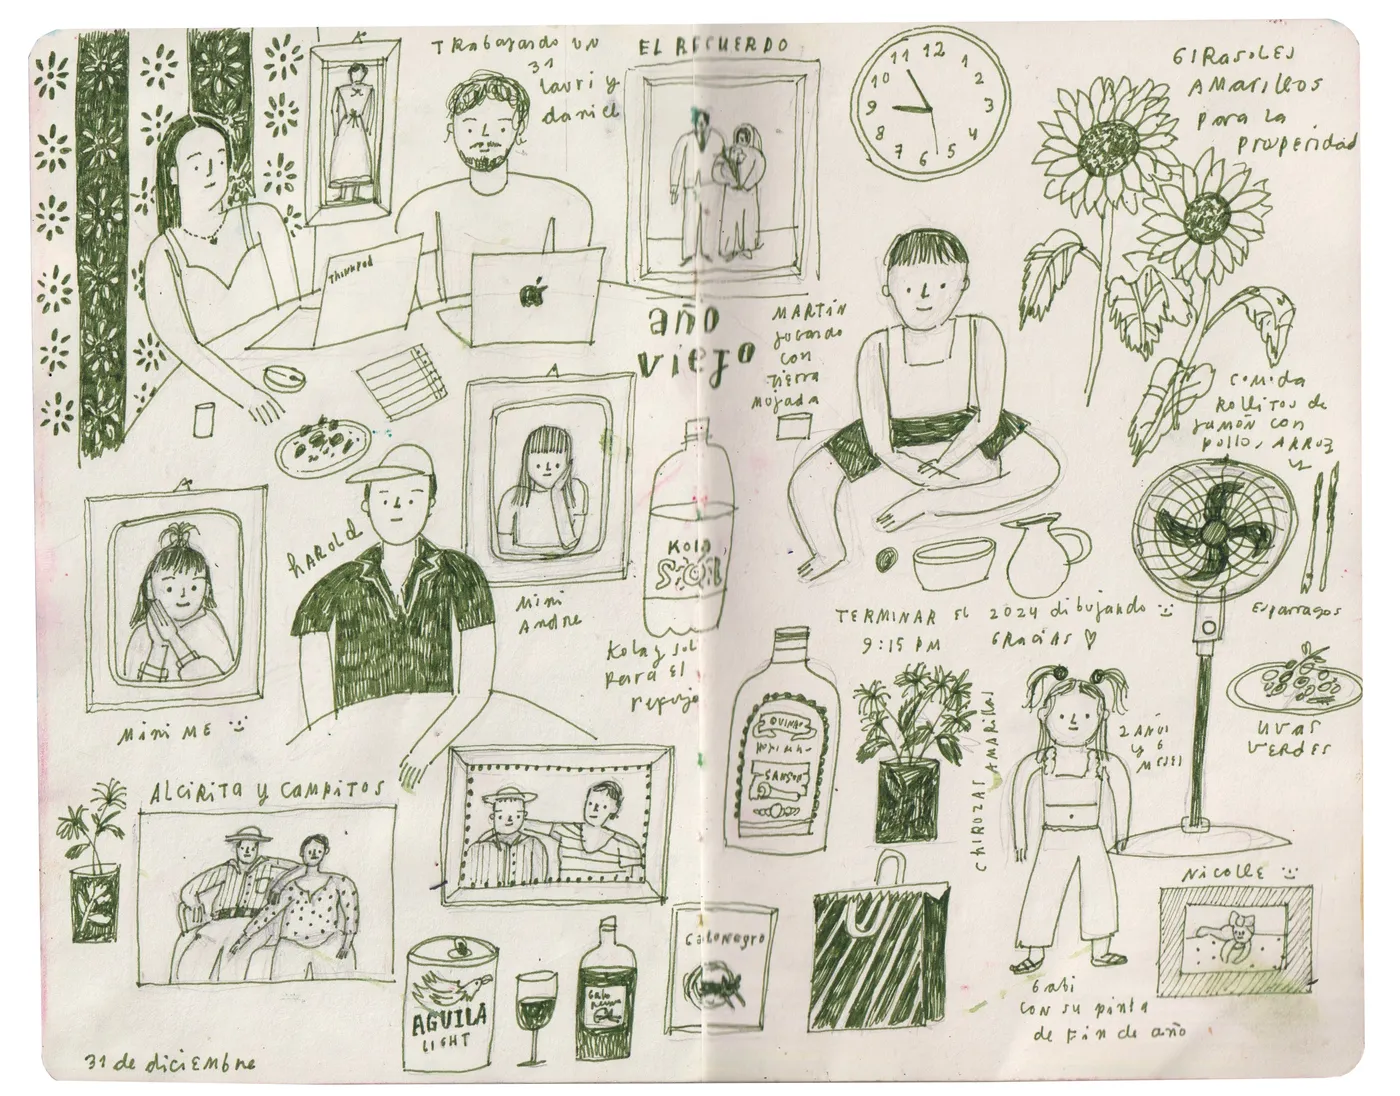 Trabajando un
31
lauri y
daniel
EL RECUERDO
12
1
2
3
4
5
6
7
8
9
10
11
GIRASOLES
AMARILLOS
para la
prosperidad
ThinkPad
año
viejo
MARTÍN
jugando
con
tierra
mojada
comida
ROLLITOS de
jamón con
pollo, ARROZ
Esparragos
UVAS
VERDES
harold
Mini
Andre
Kola
SOL
Kola y sol
para El
refajo
TERMINAR El 2024 dibujando
9:15 PM GRACIAS
MINI ME
ALCIRITA y CAMPITOS
CHIROZAS AMARILLAS
2 AÑOS
y 6
MESES
NICOLLE
AGUILA
LIGHT
GatoNegro
Gabi
con su pinta
de Fin de año
31 de diciembre